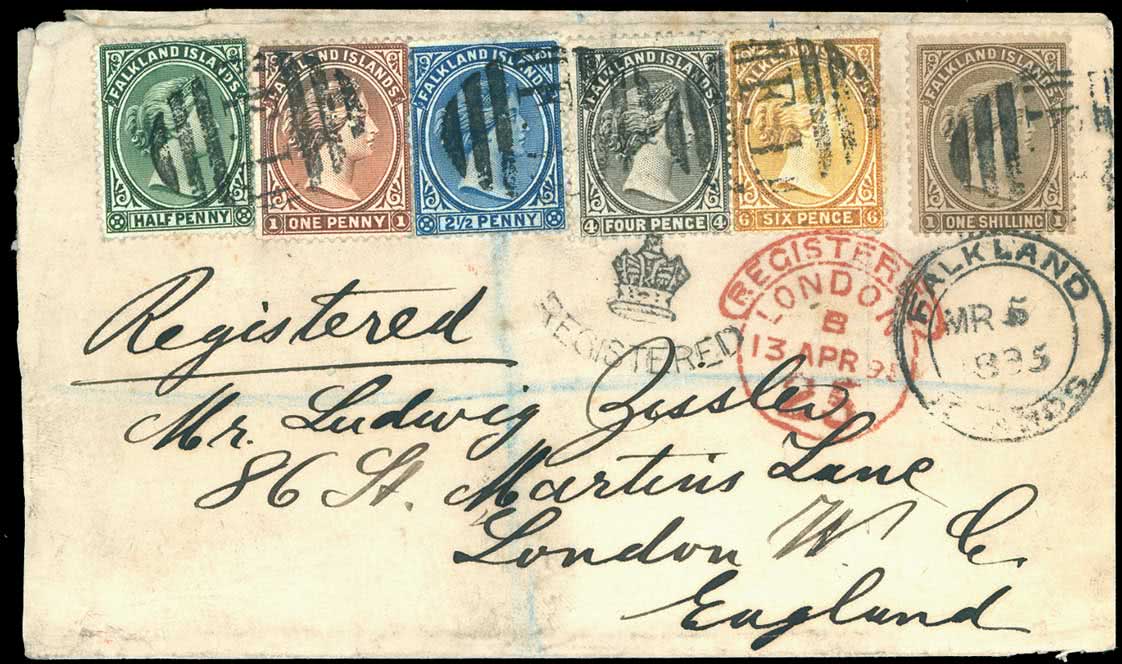 FALKLAND ISLANDS
HALF PENNY
FALKLAND ISLANDS
1 ONE PENNY 1
FALKLAND ISLANDS
2½ PENNY
FALKLAND ISLANDS
4 FOUR PENCE 4
FALKLAND ISLANDS
6 SIX PENCE 6
FALKLAND ISLANDS
1 ONE SHILLING 1
REGISTERED
REGISTERED
LONDON
B
13 APR 95
25
FALKLAND
MR 5
Registered
Mr. Ludwig
86 St. Martins Lane
London W C.
England